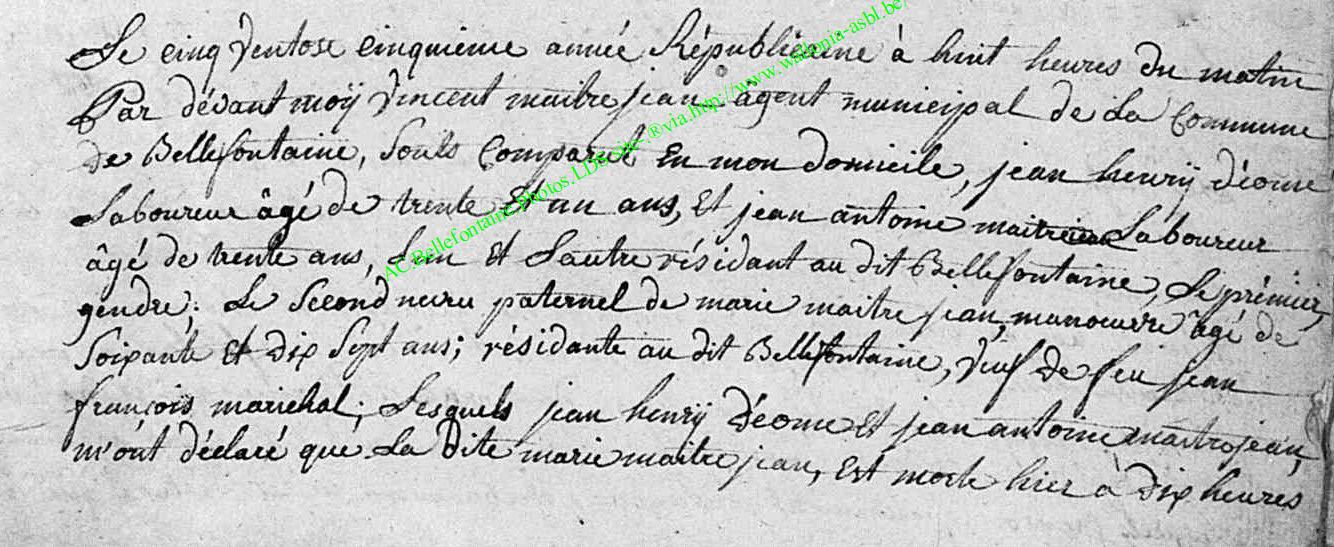 Le cinq Ventose cinquieme année Républicaine à huit heures du matin
Par dévant moÿ Vincent maitrejean agent municipal de La Commune
de Bellefontaine, sont Comparut En mon domicile, jean henrÿ déome
Laboureur âgé de trente Et un ans, Et jean antoine maitrejean Laboureur
âgé de trente ans, L'un Et L'autre résidant au dit Bellefontaine, Le prémier,
gendre; Le Second neveu paternel de marie maitrejean, manoeuvre âgé de
Soixante Et dix Sept ans; résidante au dit Bellefontaine, Veuf de feu jean
françois marichal; Lesquels jean henrÿ Déome Et jean antoine maitrejean,
m'ont déclaré que La Dite marie maitrejean, Est morte hier à Dix heures
AC.Bellefontaine.Photos.LDS. ®via.http://www.wallonia-asbl.be/